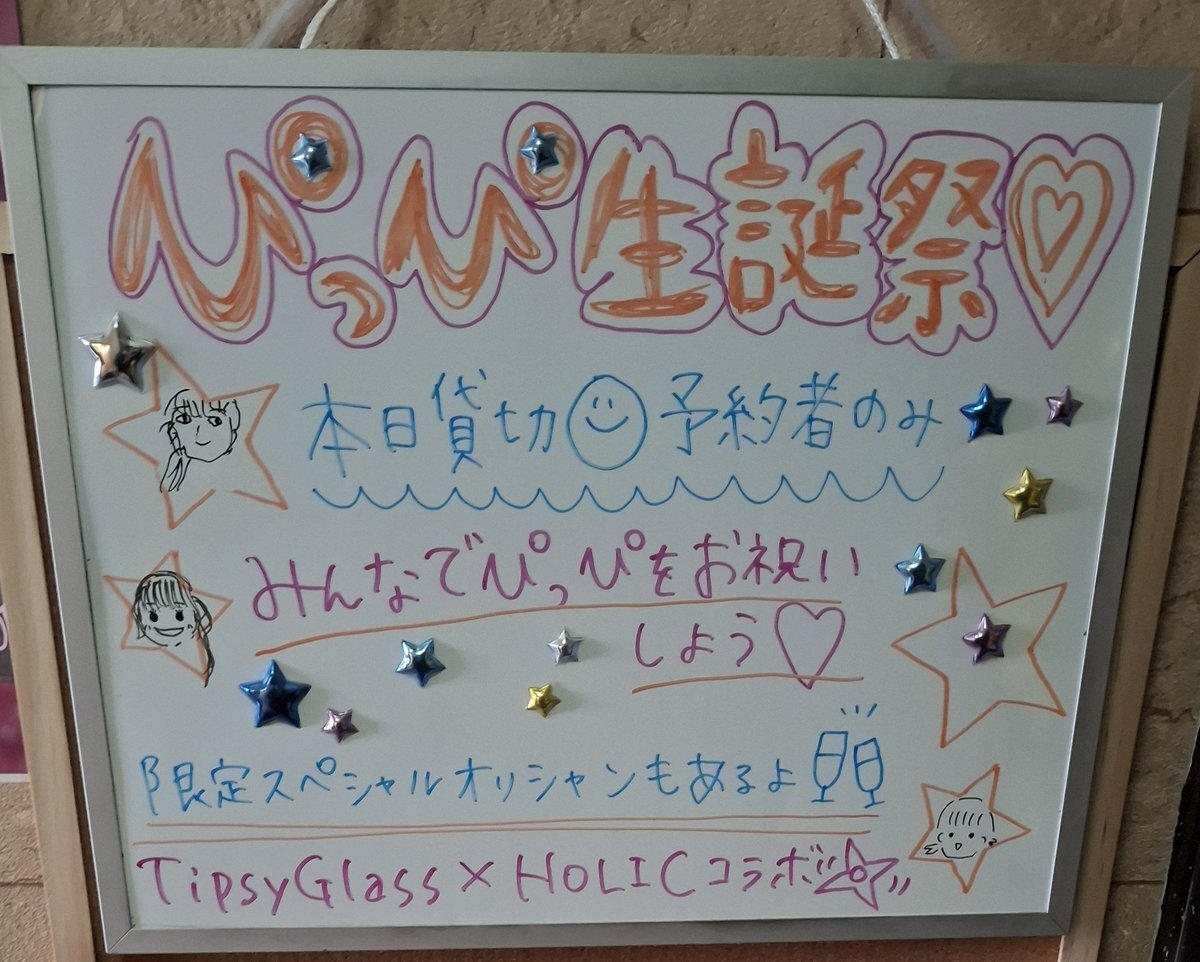 ぴっぴ生誕祭♡
本日貸切☺予約者のみ
みんなでぴっぴをお祝い
しよう♡
限定スペシャルオリシャンもあるよ
TipsyGlass×HOLICコラボ☆